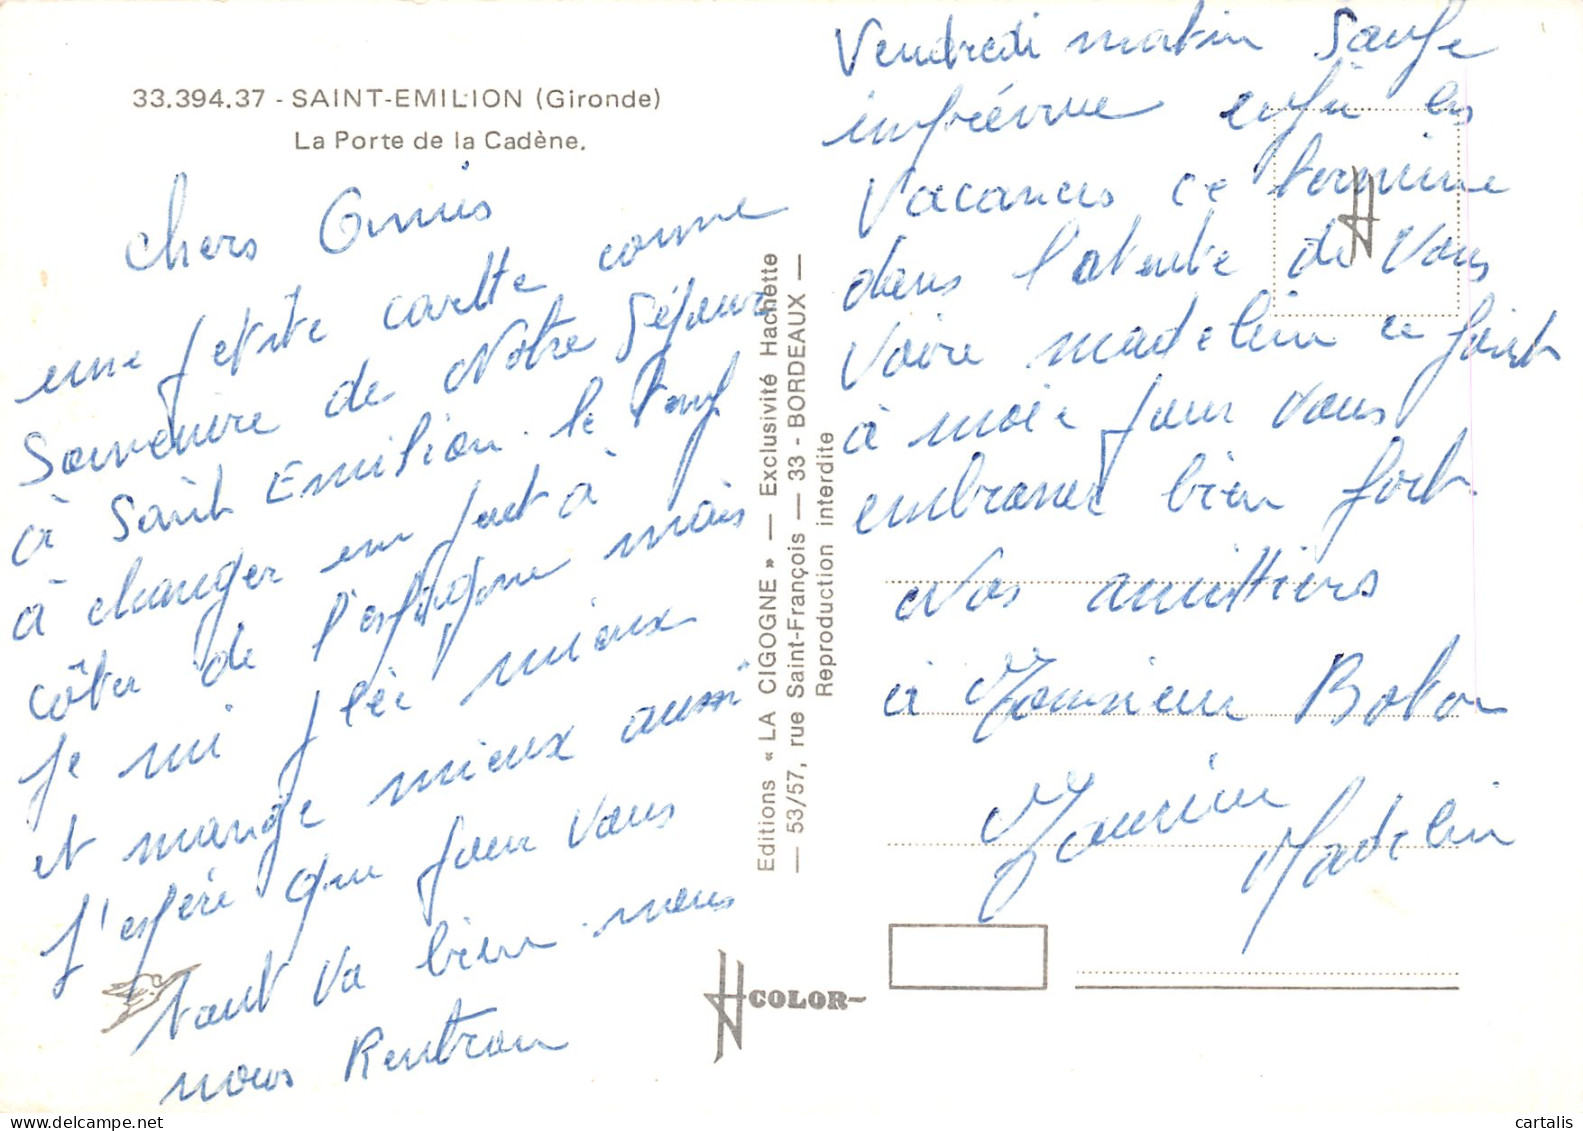 33.394.37 - SAINT-EMILION (Gironde)
La Porte de la Cadène.
chers Amis
une petite cartte comme
Souvenire de Notre Séjour
à Saint Emilion. le Temp
à changer en part à
côter de l'espagne mais
je mi plèr mieux
et mange mieux aussi
j'espére que pour vous
tout va bien. nous
nous Rentron
Vendredi matin Saufe
imprévue enfin les
Vacances ce termine
dans l'atente de Vous
Voire madelein ce joint
à moie pour vous
embrasser bien fort.
Nos amittiers
à Monsieur Bolon
Maurice
Madelein
Editions « LA CIGOGNE » — Exclusivité Hachette
— 53/57, rue Saint-François — 33 - BORDEAUX —
Reproduction interdite
H
H COLOR
cartalis